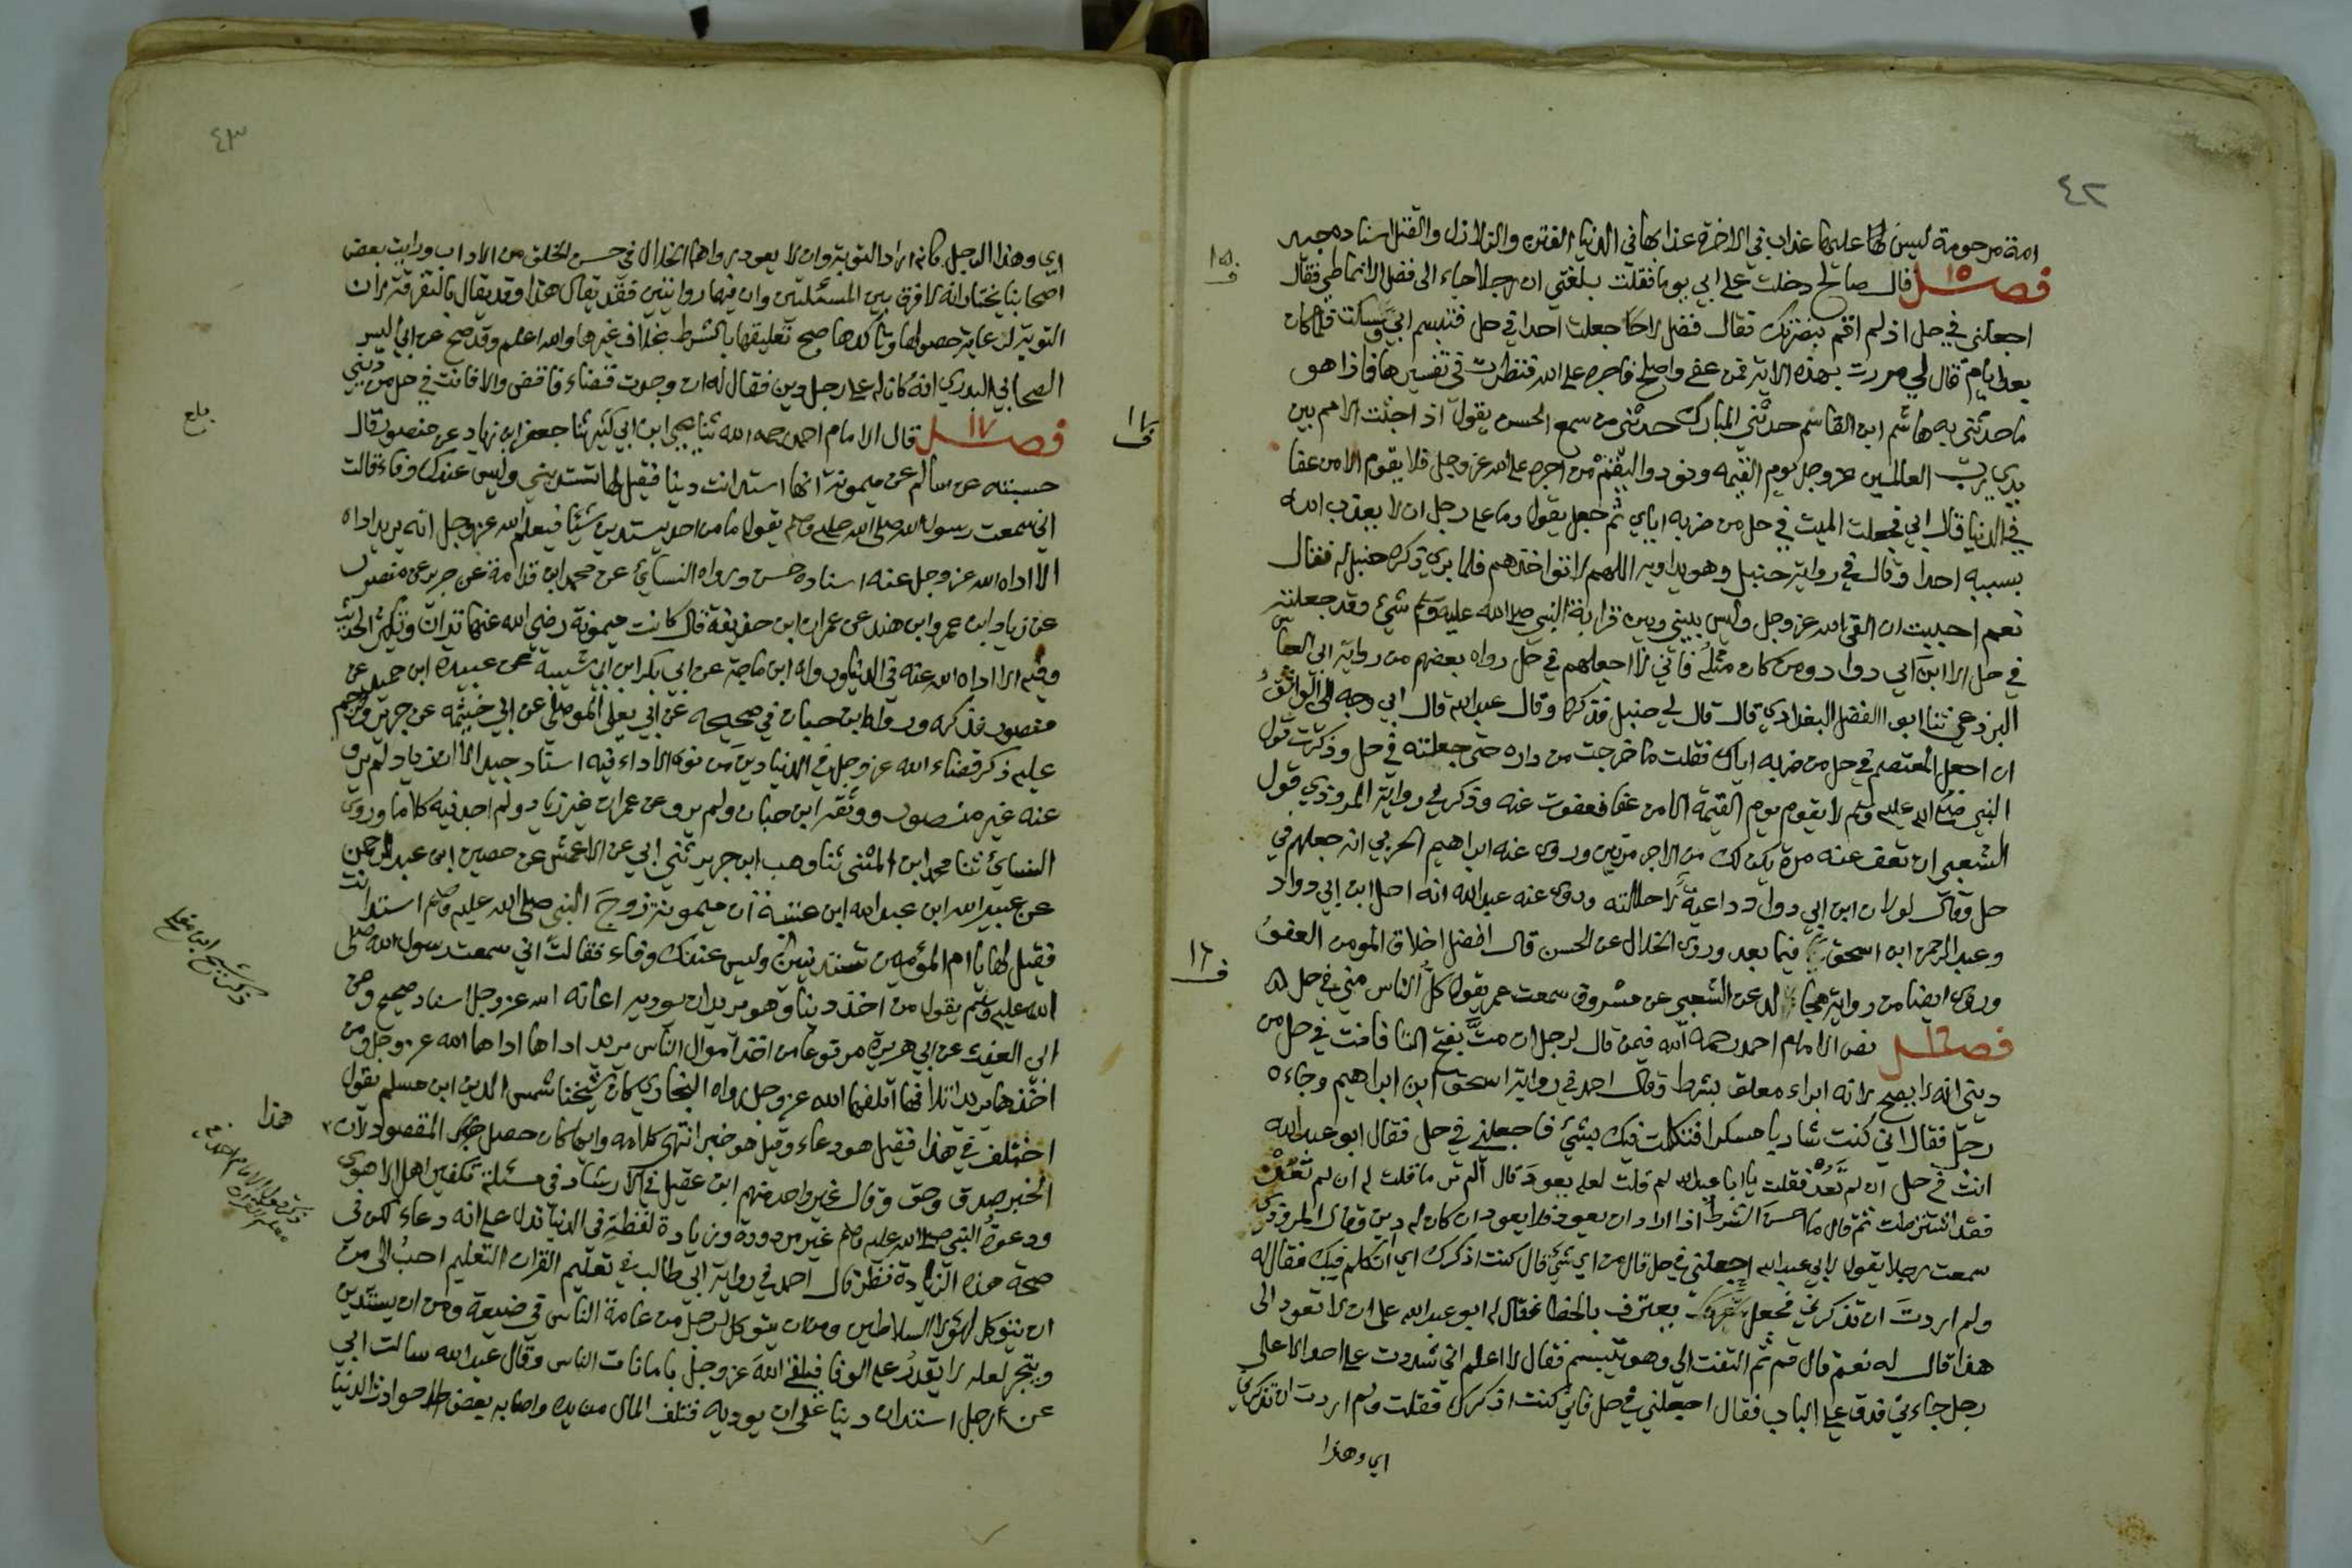 ٤٢
امة مرحومة ليس لها عليها عذاب في الاخرة عذابها في الدنيا الفتن والزلازل والقتل اسناده جيد
فصل ١٥ قال صالح دخلت على ابي يوما فقلت بلغني ان رجلا جاء الى فضل الانماطي فقال
اجعلني في حل اذ لم اقم بنصرتك فقال فضل لا جعلت احدا في حل فتبسم ابي وسكت فلما كان
بعد ايام قال لي مررت بهذه الاية فمن عفى واصلح فاجره على الله فنظرت في تفسيرها فاذا هو
ما حدثني به هاشم ابن القاسم حدثني المبارك حدثني من سمع الحسن يقول اذا جثت الامم بين
يدي رب العالمين عز وجل يوم القيمه ونودوا ليقم من اجره على الله عز وجل فلا يقوم الا من عفا
في الدنيا قال ابي فجعلت الميت في حل من ضربه اياي ثم جعل يقول وما على رجل ان لا يعذب الله
بسببه احدا وقال في رواية حنبل وهو يداويه اللهم لا تواخذهم فلما بري ذكره حنبل له فقال
نعم احببت ان القى الله عز وجل وليس بيني وبين قرابة النبي صلى الله عليه وسلم شئ وقد جعلته
في حل الا ابن ابي دواد ومن كان مثله فاني لا اجعلهم في حل رواه بعضهم من رواية ابي العباس
البرذعي ثنا ابو الفضل البغدادي قال قال لي حنبل فذكرها وقال عبد الله قال ابي وجه الي الواثق
ان اجعل المعتصم في حل من ضربه اياك فقلت ما خرجت من داره حتى جعلته في حل وذكرت قول
النبي صلى الله عليه وسلم لا يقوم يوم القيمة الا من عفا فعفوت عنه وذكر في رواية المروذي قول
الشعبي ان تعف عنه مرة يكن لك من الاجر مرتين وروى عنه ابراهيم الحربي انه جعلهم في
حل وقال لولا ان ابن ابي دواد داعية لاحللته وروى عنه عبد الله انه احل ابن ابي دواد
وعبد الرحمن ابن اسحق فيما بعد وروى الخلال عن الحسن قال افضل اخلاق المومن العفو
وروى ايضا من رواية مجالد عن الشعبي عن مسروق سمعت عمر يقول كل الناس مني في حل
فصل ١٦ نص الامام احمد رحمه الله فيمن قال لرجل ان مت بفتح التا فانت في حل من
ديني انه لا يصح لانه ابراء معلق بشرط وقال احمد في رواية اسحق ابن ابراهيم وجاءه
رجل فقال اني كنت شاربا مسكرا فتكلمت فيك بشئ فاجعلني في حل فقال ابو عبد الله
انت في حل ان لم تعد فقلت يا ابا عبد الله لم قلت لعله يعود قال الم تر ما قلت له ان لم تعد
فقد اشترطت ثم قال ما احسن الشرط اذا اراد ان يعود فلا يعود ان كان له دين وقال المروذي
سمعت رجلا يقول لابي عبد الله اجعلني في حل قال من اي شئ قال كنت اذكرك اي اتكلم فيك فقال له
ولم اردت ان تذكرني فجعل يعترف بالخطا فقال له ابو عبد الله على ان لا تعود الى
هذا قال له نعم قال قم ثم التفت الي وهو يتبسم فقال لا اعلم اني شددت على احد الا على
رجل جاءني فدق علي الباب فقال اجعلني في حل فاني كنت اذكرك فقلت ولم اردت ان تذكرني
اي وهذا
ف ١٥
ف ١٦
٤٣
اي وهذا الرجل كانه اراد التوبة وان لا يعود رواهما الخلال في حسن الخلق من الاداب ورايت بعض
اصحابنا يختار انه لا فرق بين المسئلتين وان فيهما روايتين فقد يقال هذا وقد يقال بالتفرقة لان
التوبة لرعاية حصولها وتاكدها صح تعليقها بالشرط بخلاف غيرها والله اعلم وقد صح عن ابي اليسر
الصحابي البدري انه كان له على رجل دين فقال له ان وجدت قضاء فاقض والا فانت في حل من ديني
فصل ١٧ قال الامام احمد رحمه الله ثنا يحيى ابن ابي كثير ثنا جعفر ابن زياد عن منصور قال
حسبته عن سالم عن ميمونة انها استدانت دينا فقيل لها تستدينين وليس عندك وفاء قالت
اني سمعت رسول الله صلى الله عليه وسلم يقول ما من احد يستدين شيئا فيعلم الله عز وجل انه يريد اداه
الا اداه الله عز وجل عنه اسناده حسن ورواه النسائ عن محمد ابن قدامة عن جرير عن منصور
عن زياد ابن عمرو ابن هند عن عمران ابن حذيفة قال كانت ميمونة رضي الله عنها تدان وتكثر الحديث
وفيه الا اداه الله عنه في الدنيا ورواه ابن ماجة عن ابي بكر ابن ابي شيبة عن عبيدة ابن حميد عن
منصور فذكره ورواه ابن حبان في صحيحه عن ابي يعلى الموصلي عن ابي خيثمه عن جرير وترجم
عليه ذكر قضاء الله عز وجل في الدنيا دين من نوى الاداء فيه اسناد جيد الا ان زياد لم يرو
عنه غير منصور ووثقه ابن حبان ولم يرو عن عمران غير زياد ولم اجد فيه كلاما وروى
النسائ ثنا محمد ابن المثنى ثنا وهب ابن جرير ثني ابي عن الاعمش عن حصين ابن عبد الرحمن
عن عبيد الله ابن عبد الله ابن عتبة ان ميمونة زوج النبي صلى الله عليه وسلم استدانت
فقيل لها يا ام المؤمنين تستدينين وليس عندك وفاء فقالت اني سمعت رسول الله صلى
الله عليه وسلم يقول من اخذ دينا وهو يريد ان يوديه اعانه الله عز وجل اسناد صحيح وعن
ابي الغيث عن ابي هريرة مرفوعا من اخذ اموال الناس يريد اداها اداها الله عز وجل ومن
اخذها يريد اتلافها اتلفها الله عز وجل رواه البخاري كان شيخنا شمس الدين ابن مسلم يقول
اختلف في هذا فقيل هو دعاء وقيل هو خبر انتهى كلامه وايما كان حصل المقصود لان
الخبر صدق وحق وقال غير واحد منهم ابن عقيل في الارشاد في مسئلة تكفير اهل الاهوى
ودعوة النبي صلى الله عليه وسلم غير مردودة وزيادة لفظة في الدنيا تدل على انه دعاء لكن في
صحة هذه الزيادة نظر قال احمد في رواية ابي طالب في تعليم القران التعليم احب الي من
ان يتوكل لهؤلاء السلاطين ومن ان يتوكل لرجل من عامة الناس في ضيعة ومن ان يستدين
ويتجر لعله لا يقدر على الوفا فيلقى الله عز وجل بامانات الناس وقال عبد الله سالت ابي
عن رجل استدان دينا على ان يوديه فتلف المال من يده واصابه بعض حوادث الدنيا
ف ١٧
بلغ
ذكر شيخ ابن مفلح
هذا